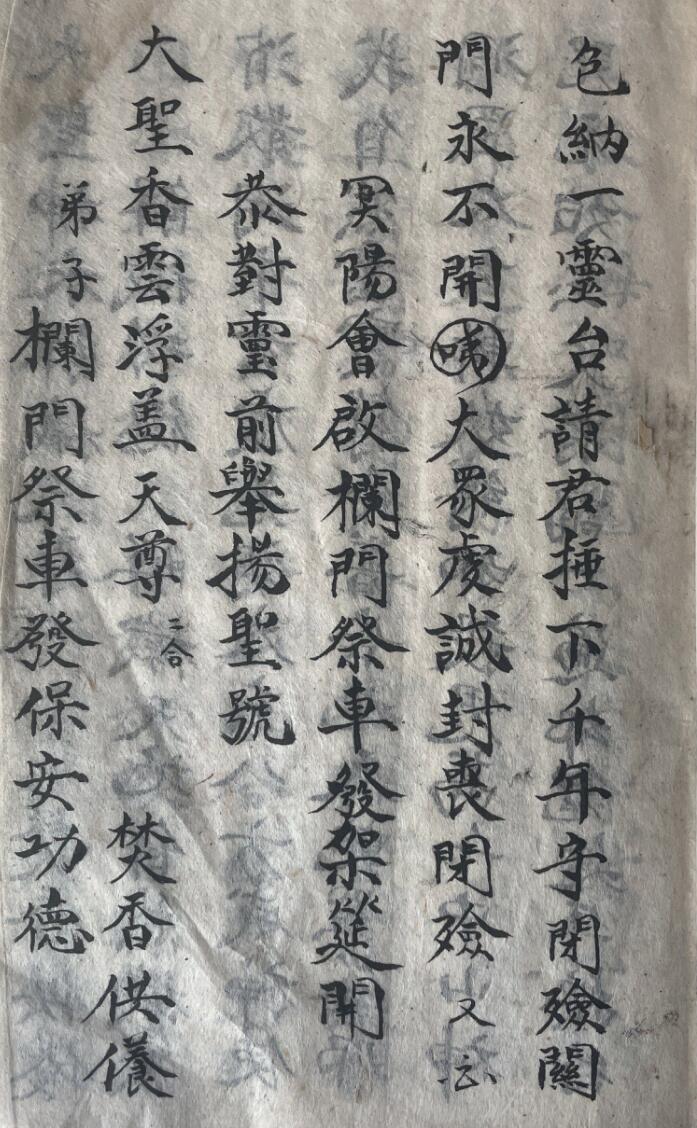 色納一靈台請君捶下千年守閉殮關
門永不開唏大眾虔誠封喪閉殮又云
冥陽會啟欄門祭車發架筵開
恭對靈前舉揚聖號
大聖香雲浮盖天尊二合 焚香供養
弟子欄門祭車發保安功德